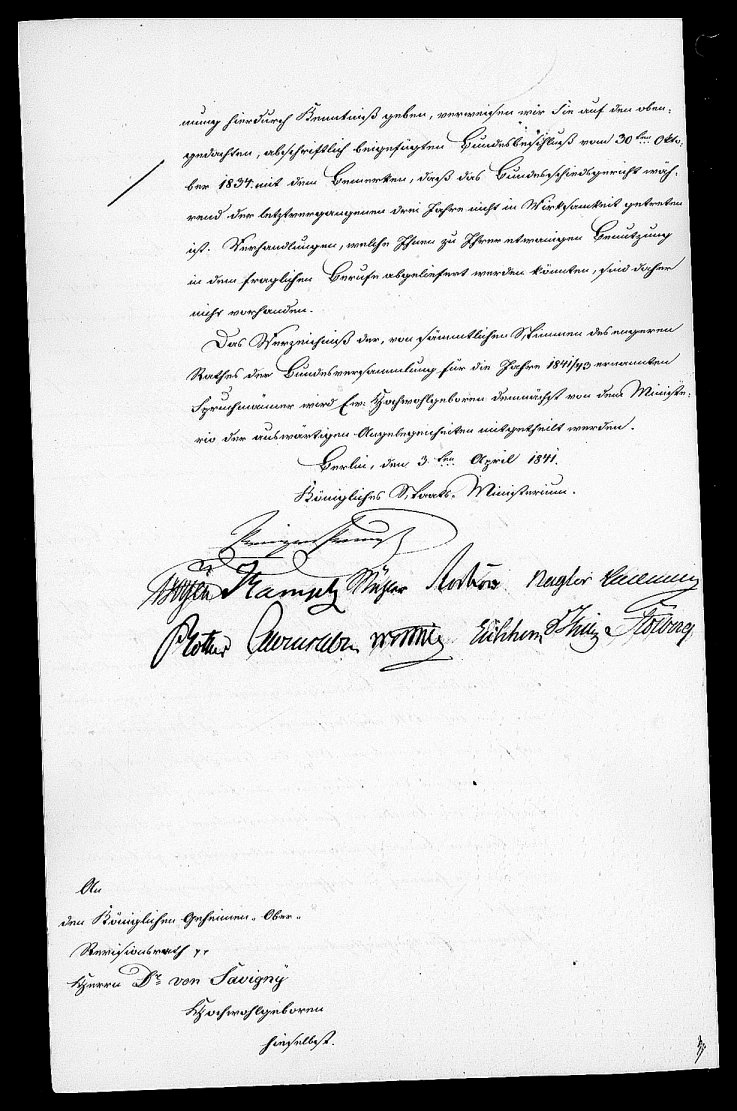 nung hierdurch Kenntniß geben, verweisen wir Sie auf den oben-
gedachten, abschriftlich beigefügten Bundesbeschluß vom 30ten Okto-
ber 1834 mit dem Bemerken, daß das Bundesschiedsgericht wäh-
rend der letztvergangenen drei Jahre nicht in Wirksamkeit getreten
ist. Verhandlungen, welche Ihnen zu Ihrer etwanigen Benutzung
in dem fraglichen Berufe abgeliefert werden könnten, sind daher
nicht vorhanden.
Das Verzeichniß der, von sämmtlichen Stimmen des engeren
Rathes der Bundesversammlung für die Jahre 1841/43 ernannten
Spruchmänner wird Ew: Hochwohlgeboren demnächst von dem Ministe-
rio der auswärtigen Angelegenheiten mitgetheilt werden.
Berlin, den 3ten April 1841.
Königliches Staats-Ministerium.
Boyen Kamptz Mühler Rochow Nagler Ladenberg
Rother Alvensleben Werther Eichhorn Thile Stolberg
An
den Königlichen Geheimen-Ober-
Revisionsrath
Herrn Dr von Savigny
Hochwohlgeboren
hieselbst.